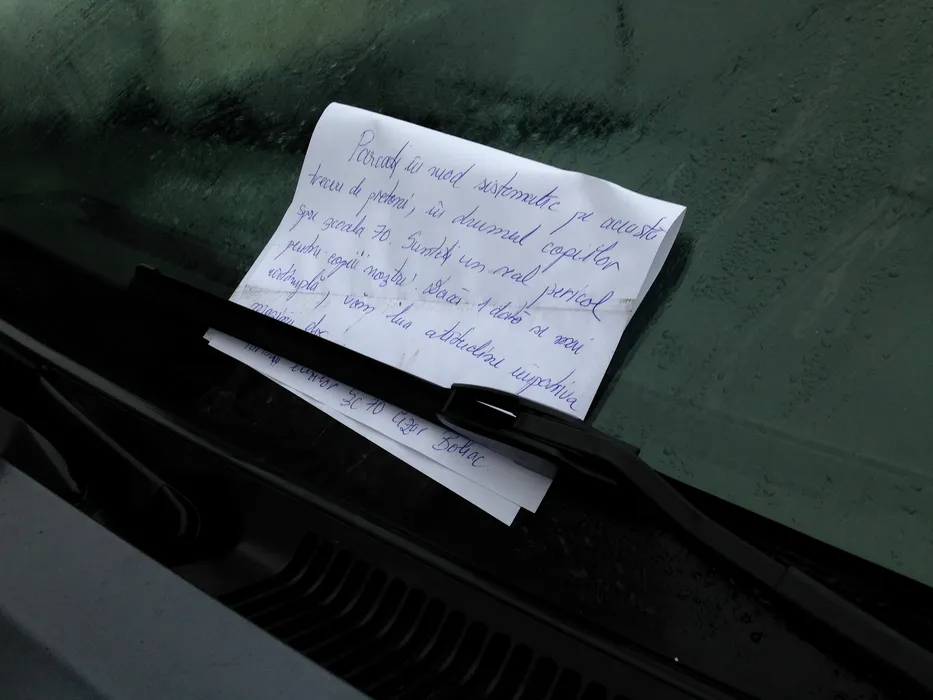 Parcați în mod sistematic pe această
trecere de pietoni, în drumul copiilor
spre școala 70. Sunteți un real pericol
pentru copiii noștri! Dacă 1 dată se mai
întâmplă, vom lua atitudine împotriva
mașinii dvs.
SC 70 Cizer Botiac